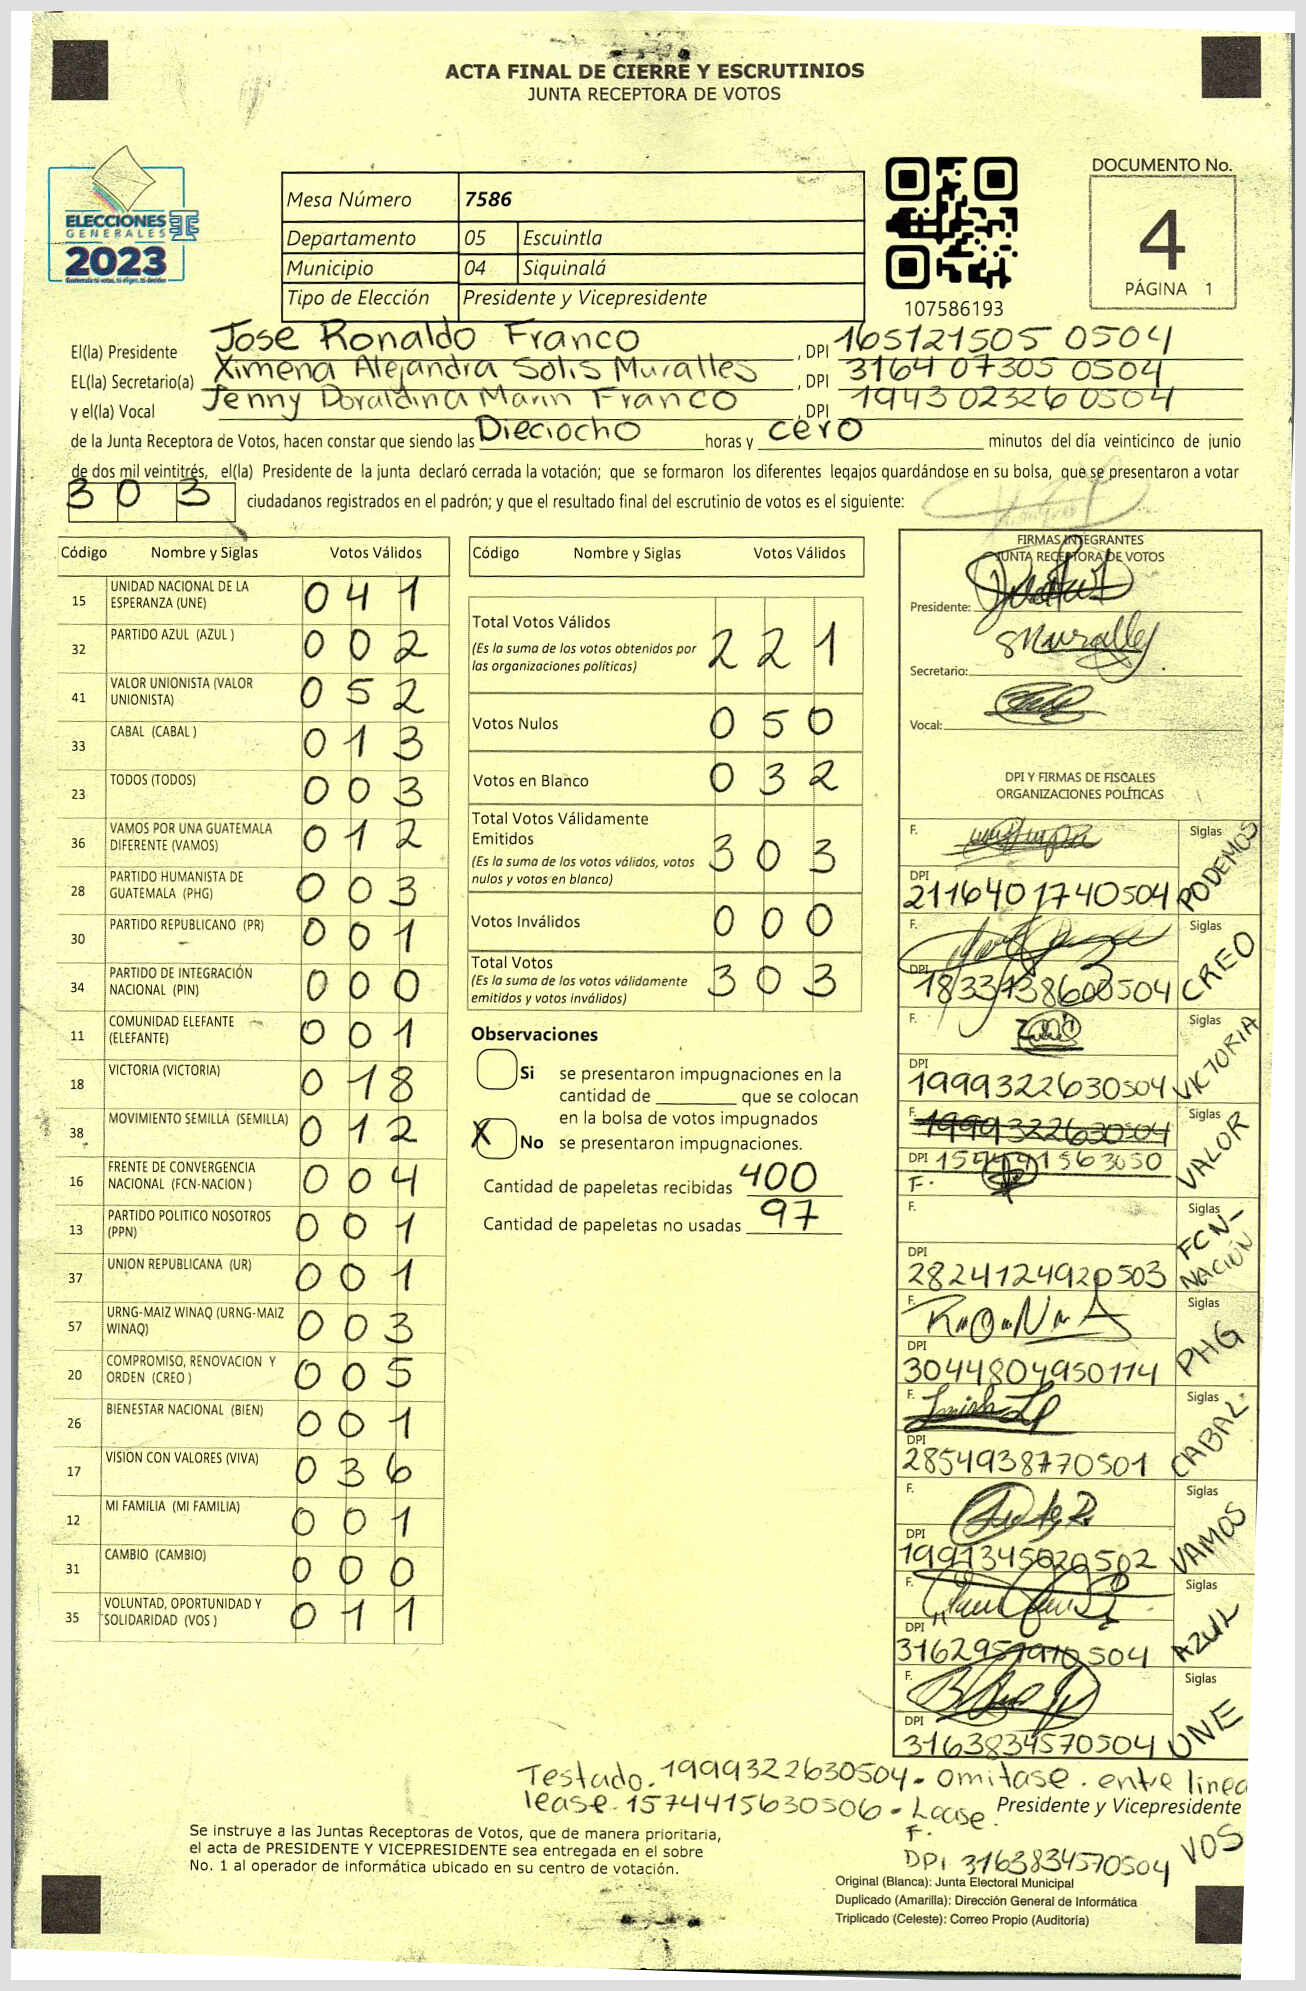 ACTA FINAL DE CIERRE Y ESCRUTINIOS
JUNTA RECEPTORA DE VOTOS
DOCUMENTO No.
4
PÁGINA 1
ELECCIONES
GENERALES
2023
Mesa Número 7586
Departamento 05 Escuintla
Municipio 04 Siquinalá
Tipo de Elección Presidente y Vicepresidente
107586193
El(la) Presidente Jose Ronaldo Franco, DPI 165121505 0504
EL(la) Secretario(a) Ximena Alejandra Solis Muralles, DPI 3164 07305 0504
y el(la) Vocal Jenny Doraldina Marin Franco, DPI 1943 02326 0504
de la Junta Receptora de Votos, hacen constar que siendo las Dieciocho horas y cero minutos del día veinticinco de junio
de dos mil veintitrés, el(la) Presidente de la junta declaró cerrada la votación; que se formaron los diferentes legajos guardándose en su bolsa, que se presentaron a votar
303 ciudadanos registrados en el padrón; y que el resultado final del escrutinio de votos es el siguiente:
Código Nombre y Siglas Votos Válidos
15 UNIDAD NACIONAL DE LA ESPERANZA (UNE) 041
32 PARTIDO AZUL (AZUL ) 002
41 VALOR UNIONISTA (VALOR UNIONISTA) 052
33 CABAL (CABAL ) 013
23 TODOS (TODOS) 003
36 VAMOS POR UNA GUATEMALA DIFERENTE (VAMOS) 012
28 PARTIDO HUMANISTA DE GUATEMALA (PHG) 003
30 PARTIDO REPUBLICANO (PR) 001
34 PARTIDO DE INTEGRACIÓN NACIONAL (PIN) 000
11 COMUNIDAD ELEFANTE (ELEFANTE) 001
18 VICTORIA (VICTORIA) 018
38 MOVIMIENTO SEMILLA (SEMILLA) 012
16 FRENTE DE CONVERGENCIA NACIONAL (FCN-NACION ) 004
13 PARTIDO POLITICO NOSOTROS (PPN) 001
37 UNION REPUBLICANA (UR) 001
57 URNG-MAIZ WINAQ (URNG-MAIZ WINAQ) 003
20 COMPROMISO, RENOVACION Y ORDEN (CREO ) 005
26 BIENESTAR NACIONAL (BIEN) 001
17 VISION CON VALORES (VIVA) 036
12 MI FAMILIA (MI FAMILIA) 001
31 CAMBIO (CAMBIO) 000
35 VOLUNTAD, OPORTUNIDAD Y SOLIDARIDAD (VOS ) 011
Código Nombre y Siglas Votos Válidos
Total Votos Válidos 221
(Es la suma de los votos obtenidos por
las organizaciones políticas)
Votos Nulos 050
Votos en Blanco 032
Total Votos Válidamente
Emitidos 303
(Es la suma de los votos válidos, votos
nulos y votos en blanco)
Votos Inválidos 000
Total Votos 303
(Es la suma de los votos válidamente
emitidos y votos inválidos)
Observaciones
Si se presentaron impugnaciones en la
cantidad de ________ que se colocan
en la bolsa de votos impugnados
X No se presentaron impugnaciones.
Cantidad de papeletas recibidas 400
Cantidad de papeletas no usadas 97
FIRMAS INTEGRANTES
JUNTA RECEPTORA DE VOTOS
Presidente:
Secretario: SMuralles
Vocal:
DPI Y FIRMAS DE FISCALES
ORGANIZACIONES POLÍTICAS
F. Siglas PODEMOS
DPI 2116401740504
F. Siglas CREO
DPI
F. Siglas VICTORIA
DPI 1999322630504
F. 1999322630504 Siglas VALOR
DPI
F.
F. Siglas FCN-NACIÓN
DPI 2824124920503
F. Siglas PHG
DPI 3044804950114
F. Siglas CABAL
DPI 2854938770501
F. Siglas VAMOS
DPI 1991345020502
F. Siglas AZUL
DPI
F. Siglas UNE
DPI 3163834570504
Testado. 1999322630504- omitase. entre linea
lease. 1574415630506 - Lease.
Presidente y Vicepresidente
F.
DPI 3163834570504 VOS
Se instruye a las Juntas Receptoras de Votos, que de manera prioritaria,
el acta de PRESIDENTE Y VICEPRESIDENTE sea entregada en el sobre
No. 1 al operador de informática ubicado en su centro de votación.
Original (Blanca): Junta Electoral Municipal
Duplicado (Amarilla): Dirección General de Informática
Triplicado (Celeste): Correo Propio (Auditoría)